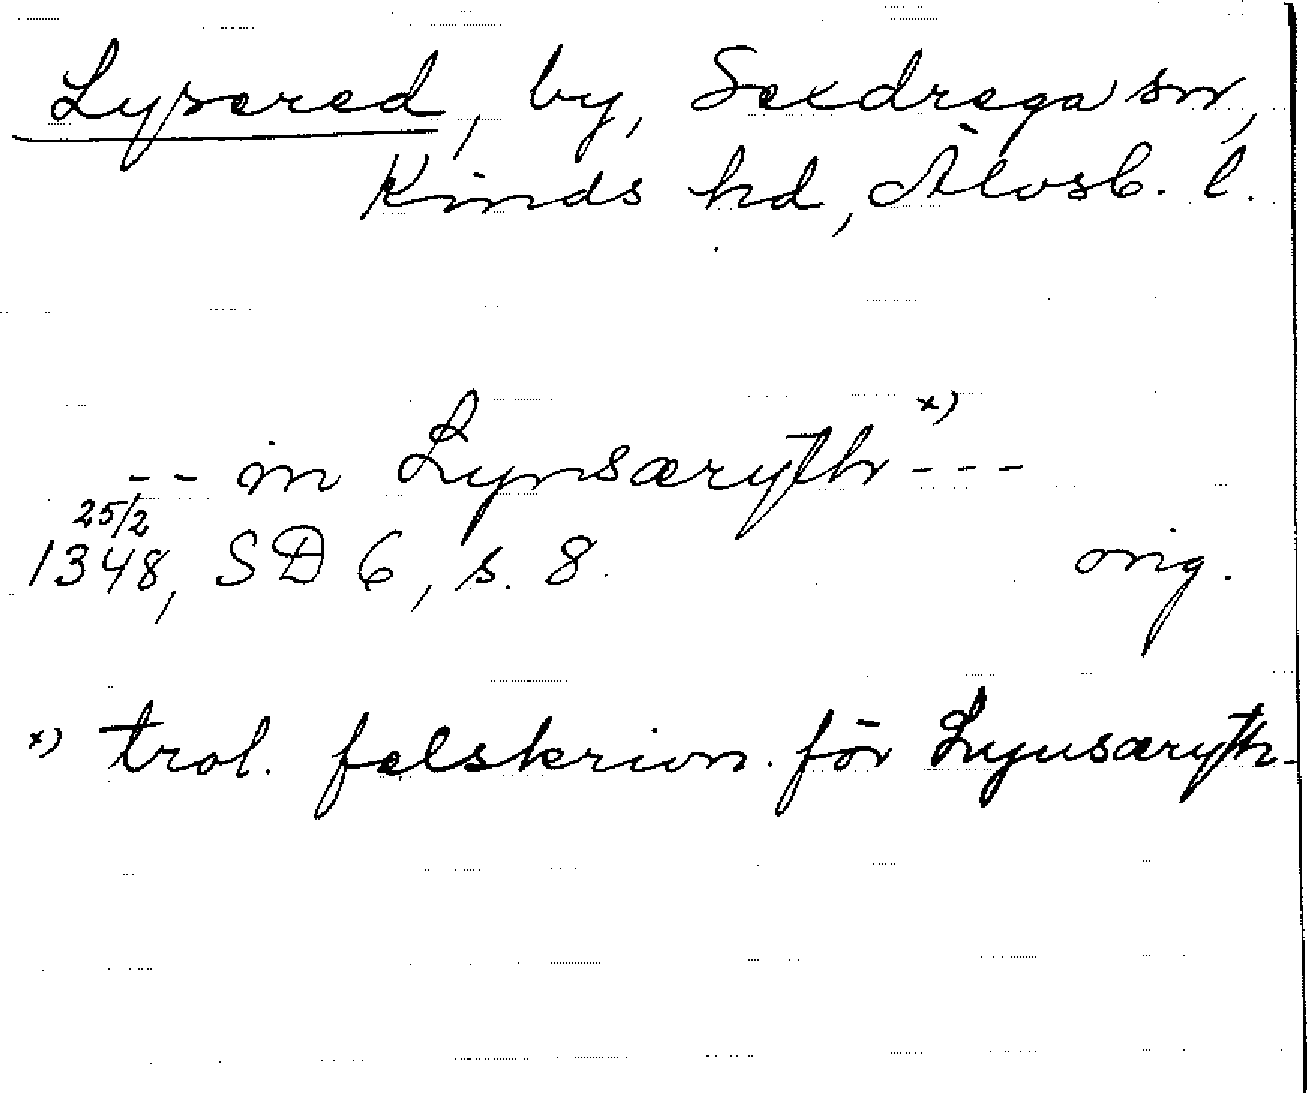 Lysered, by, Sexdrega sn,
Kinds hd, Älvsb. l.
-- in Lynsæryth x) ---
25/2
1348, SD 6, s. 8. orig.
x) trol. felskrivn. för Lyusæryth-